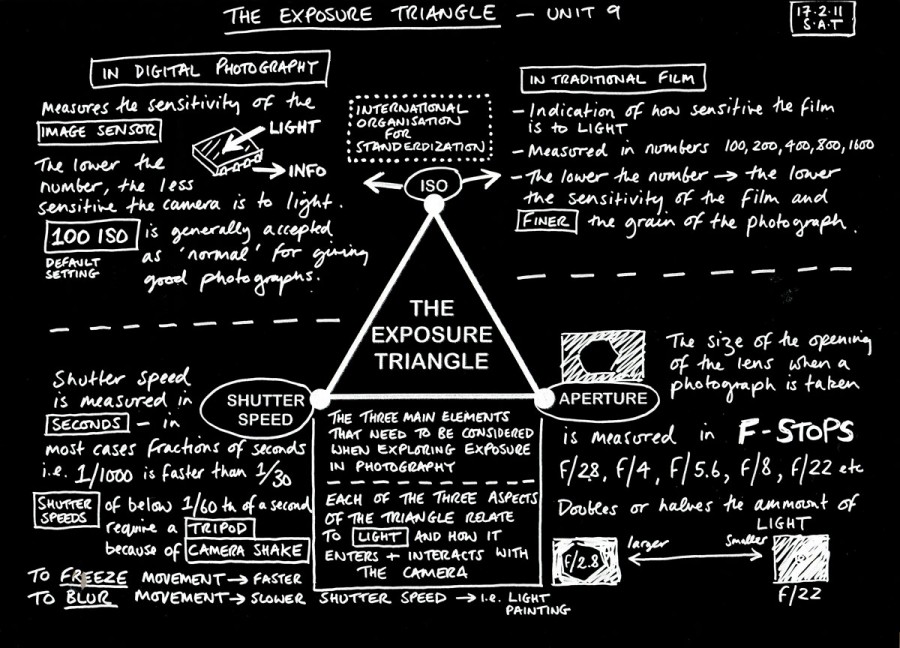 THE EXPOSURE TRIANGLE – UNIT 9
17.2.11
S.A.T
IN DIGITAL PHOTOGRAPHY
Measures the sensitivity of the
IMAGE SENSOR
LIGHT
INFO
The lower the
number, the less
sensitive the camera is to light.
100 ISO is generally accepted
DEFAULT
SETTING
as 'normal' for giving
good photographs.
INTERNATIONAL
ORGANISATION
FOR
STANDERDIZATION
ISO
IN TRADITIONAL FILM
– Indication of how sensitive the film
is to LIGHT
– Measured in numbers 100, 200, 400, 800, 1600
– The lower the number → the lower
the sensitivity of the film and
FINER the grain of the photograph.
THE
EXPOSURE
TRIANGLE
SHUTTER
SPEED
Shutter speed
is measured in
SECONDS – in
most cases fractions of seconds
i.e. 1/1000 is faster than 1/30
SHUTTER
SPEEDS
of below 1/60 th of a second
require a TRIPOD
because of CAMERA SHAKE
TO FREEZE MOVEMENT → FASTER
TO BLUR MOVEMENT → SLOWER SHUTTER SPEED → i.e. LIGHT
PAINTING
THE THREE MAIN ELEMENTS
THAT NEED TO BE CONSIDERED
WHEN EXPLORING EXPOSURE
IN PHOTOGRAPHY
EACH OF THE THREE ASPECTS
OF THE TRIANGLE RELATE
TO LIGHT AND HOW IT
ENTERS + INTERACTS WITH
THE CAMERA
APERTURE
The size of the opening
of the lens when a
photograph is taken
is measured in F-STOPS
f/2.8, f/4, f/5.6, f/8, f/22 etc
Doubles or halves the ammount of
LIGHT
larger
smaller
f/2.8
f/22